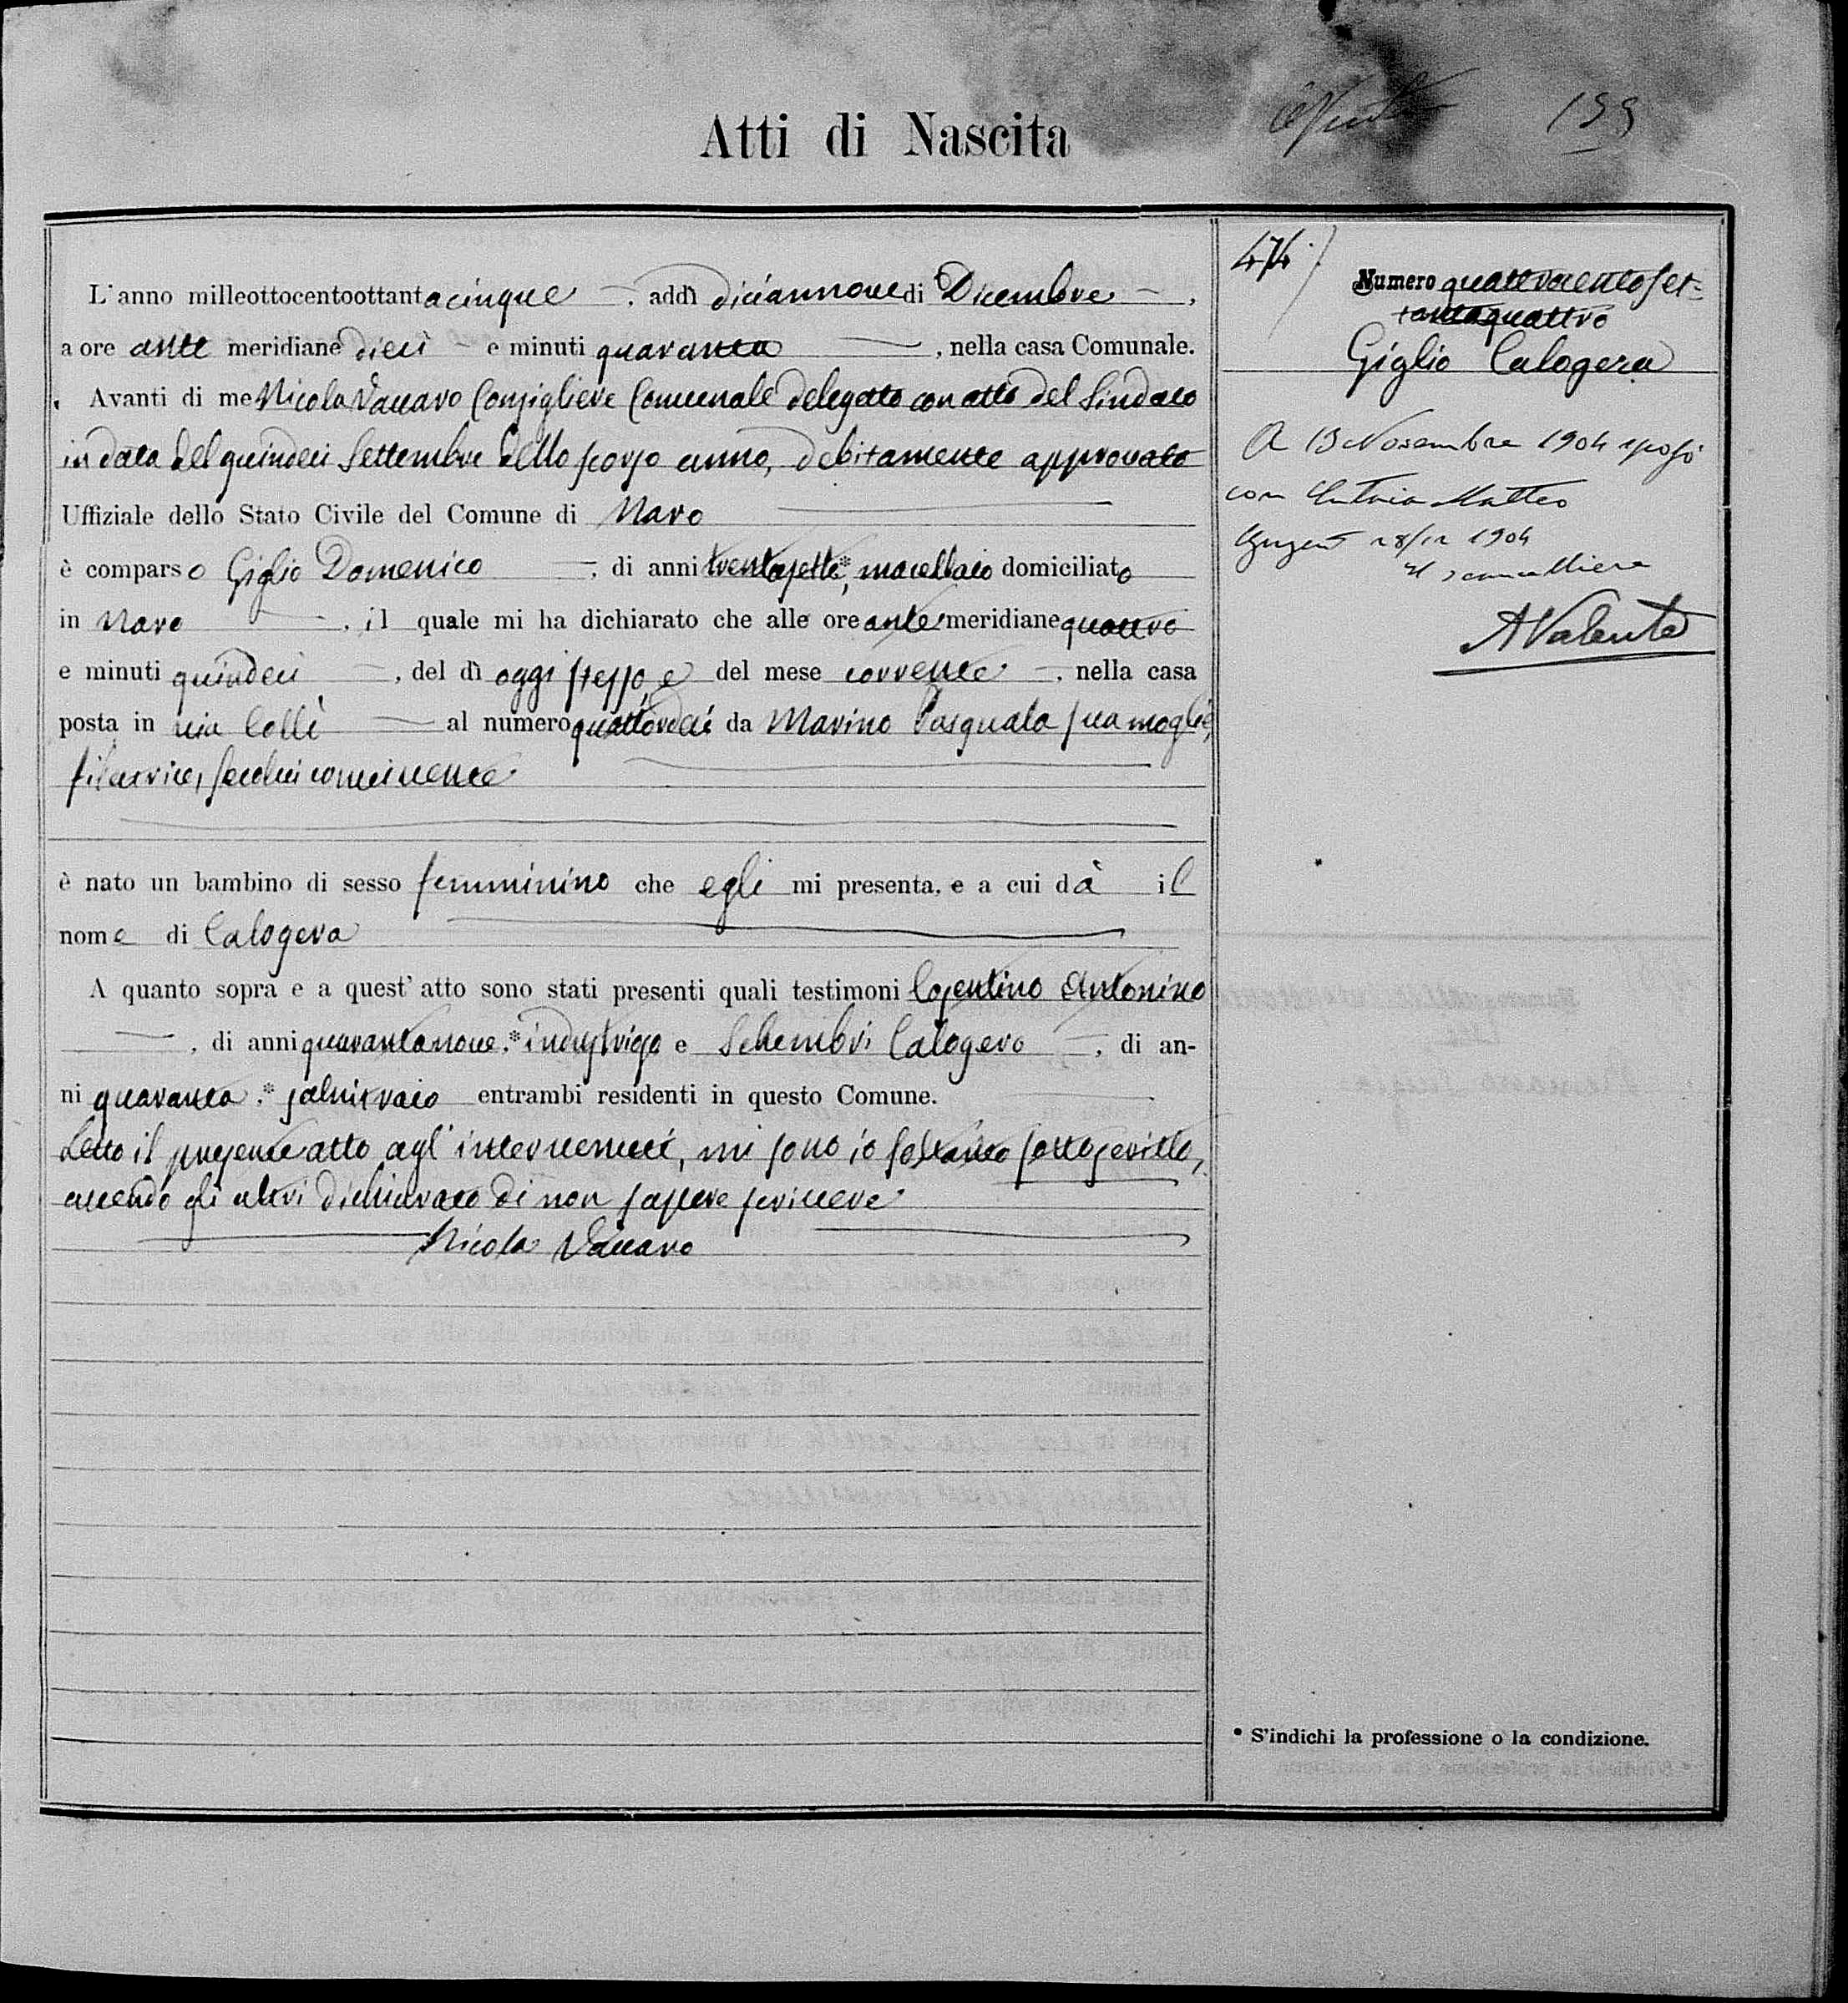 Atti di Nascita
155
L'anno milleottocentoottantacinque, addì diciannove di Dicembre,
a ore ante meridiane dieci e minuti quaranta, nella casa Comunale.
Avanti di me Nicola Vaccaro Consigliere Comunale delegato con atto del Sindaco
in data del quindici Settembre dello scorso anno, debitamente approvato
Uffiziale dello Stato Civile del Comune di Naro
è comparso Giglio Domenico, di anni trentasette, * macellaio domiciliato
in Naro, il quale mi ha dichiarato che alle ore ante meridiane quattro
e minuti quindici, del dì oggi stesso, e del mese corrente, nella casa
posta in via Collì al numero quattordici da Marino Pasquala sua moglie,
filatrice, seco lui convivente
è nato un bambino di sesso femminino che egli mi presenta, e a cui dà il
nome di Calogera
A quanto sopra e a quest' atto sono stati presenti quali testimoni Cosentino Antonino
, di anni quarantanove, * industrioso e Schembri Calogero, di an-
ni quaranta, * salnitraio entrambi residenti in questo Comune.
Letto il presente atto agl' intervenuti, mi sono io soltanto sottoscritto,
avendo gli altri dichiarato di non sapere scrivere
Nicola Vaccaro
474.
Numero quattrocentoset=
tantaquattro
Giglio Calogera
A 13 Novembre 1904 sposò
con Matteo
28/12 1904
Il cancelliere
A Valente
* S'indichi la professione o la condizione.